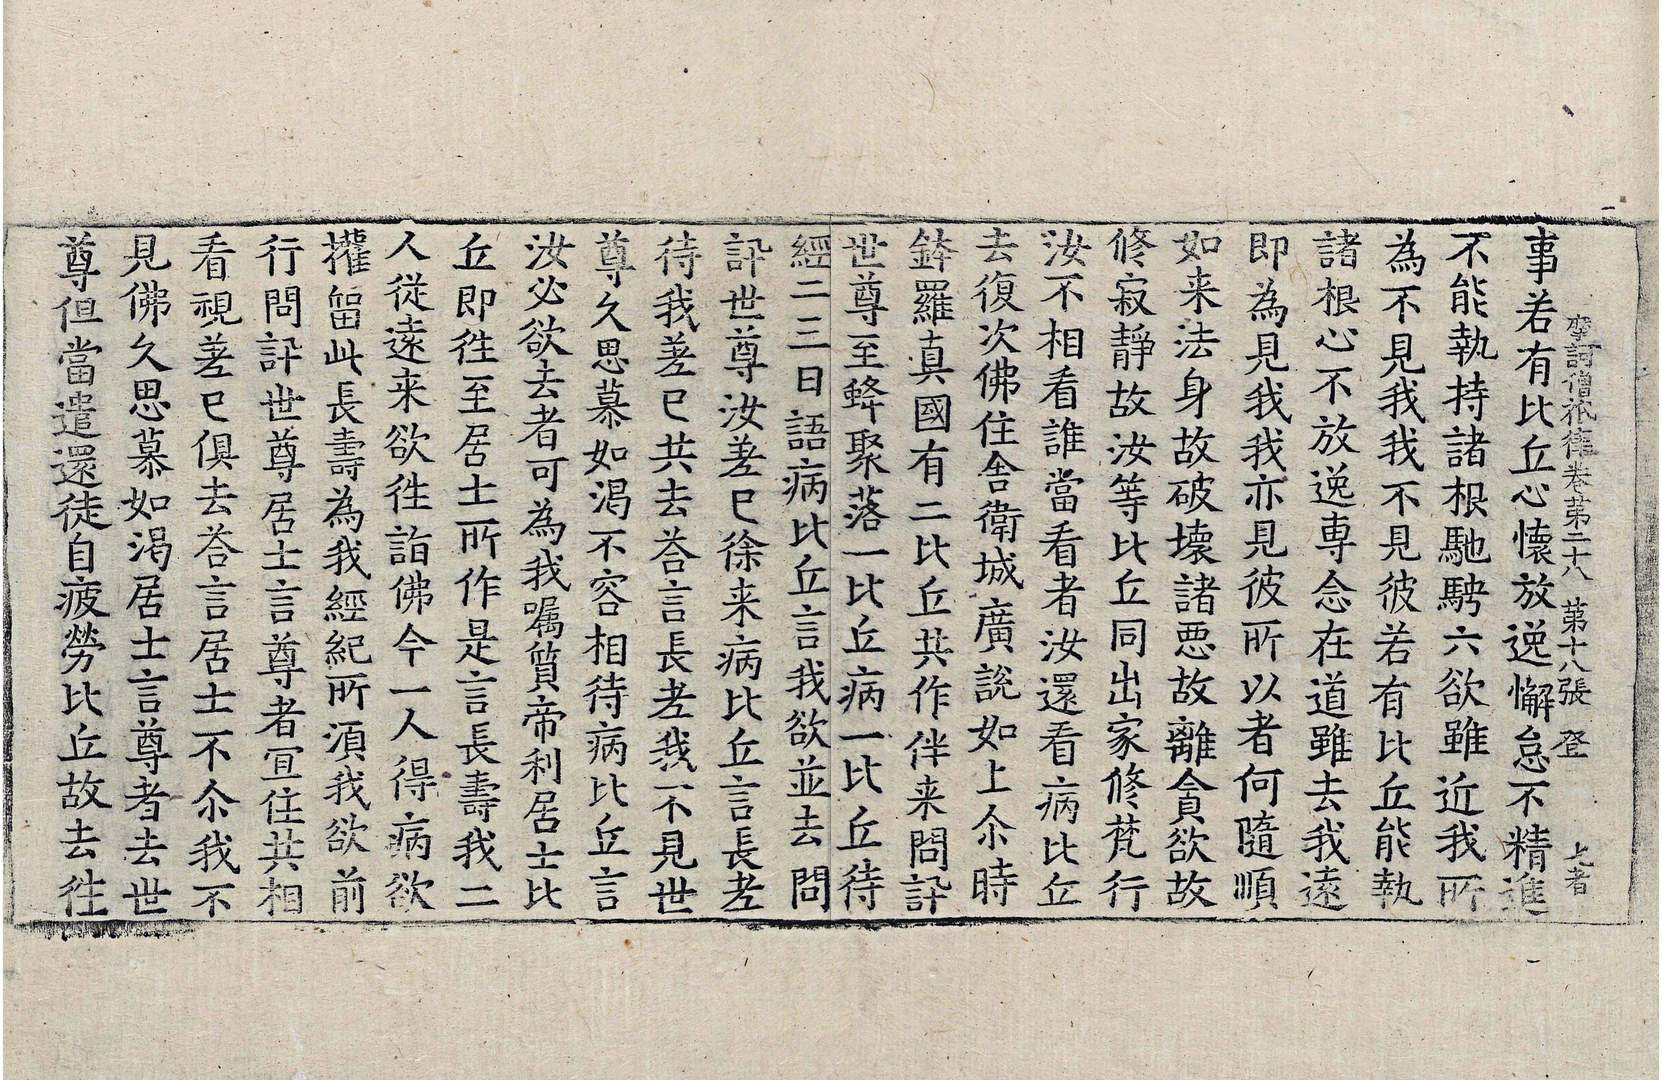 摩訶僧祇律卷苐二十八 苐十八張 登 七者
事若有比丘心懷放逸懈怠不精進
不能執持諸根馳騁六欲雖近我所
為不見我我不見彼若有比丘能執
諸根心不放逸専念在道雖去我遠
即為見我我亦見彼所以者何隨順
如来法身故破壞諸惡故離貪欲故
修寂靜故汝等比丘同出家修梵行
汝不相看誰當看者汝還看病比丘
去復次佛住舍衛城廣說如上尒時
鉢羅真國有二比丘共作伴来問訊
世尊至蜂聚落一比丘病一比丘待
經二三日語病比丘言我欲並去問
訊世尊汝差已徐来病比丘言長老
待我差已共去荅言長老我不見世
尊久思慕如渴不容相待病比丘言
汝必欲去者可為我嘱質帝利居士比
丘即徃至居士所作是言長壽我二
人從遠来欲徃詣佛今一人得病欲
㩲留此長壽為我經紀所湏我欲前
行問訊世尊居士言尊者宜住共相
看視差已俱去荅言居士不尒我不
見佛久思慕如渴居士言尊者去世
尊但當遣還徒自疲勞比丘故去徃